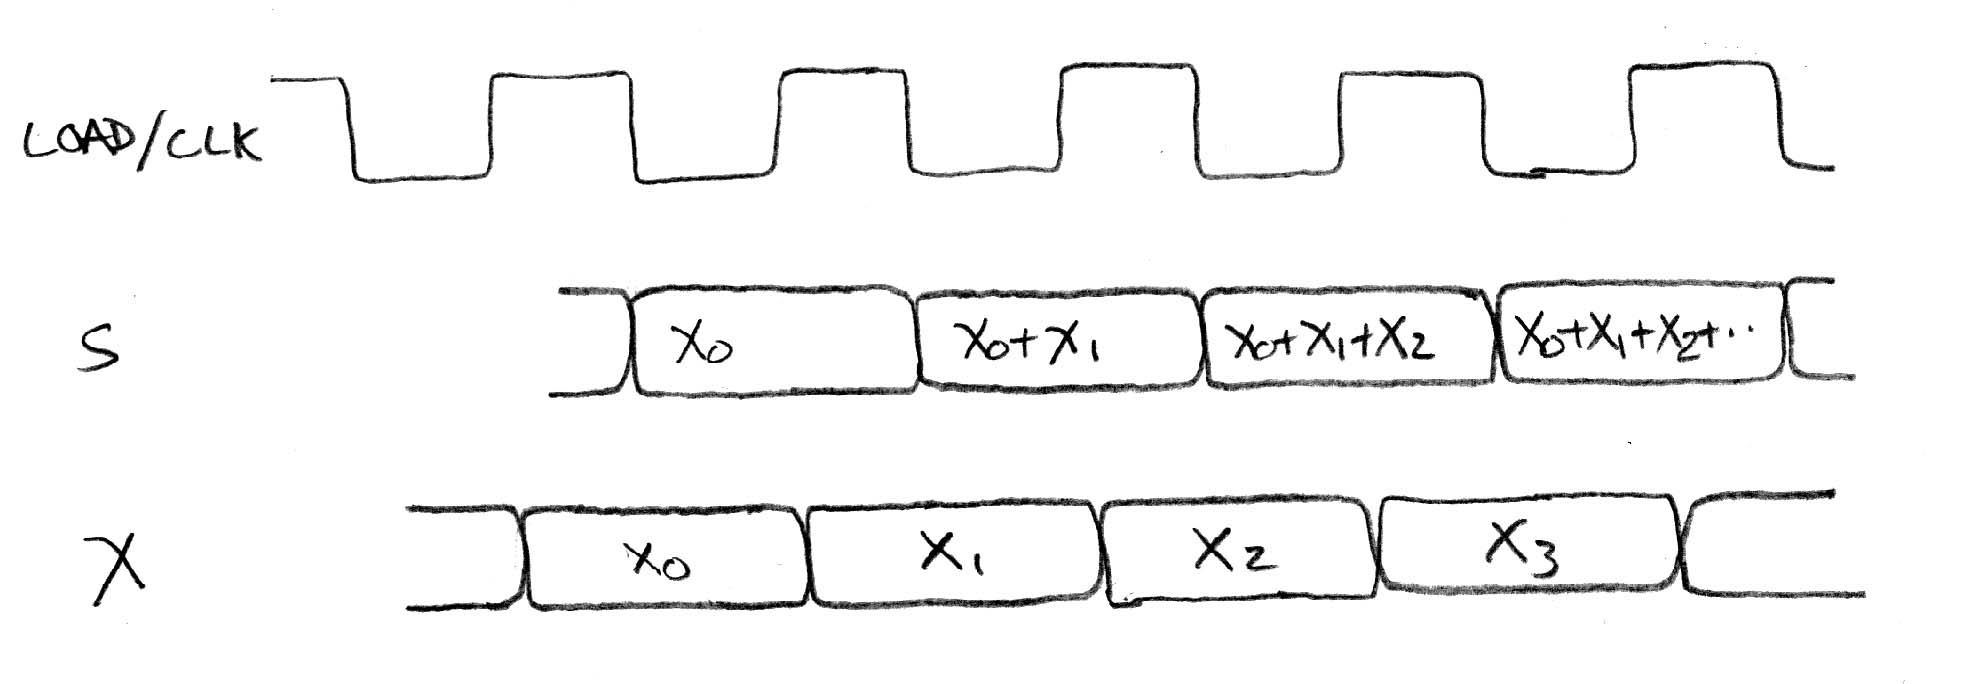 LOAD/CLK
S X0 X0+X1 X0+X1+X2 X0+X1+X2+..
X X0 X1 X2 X3